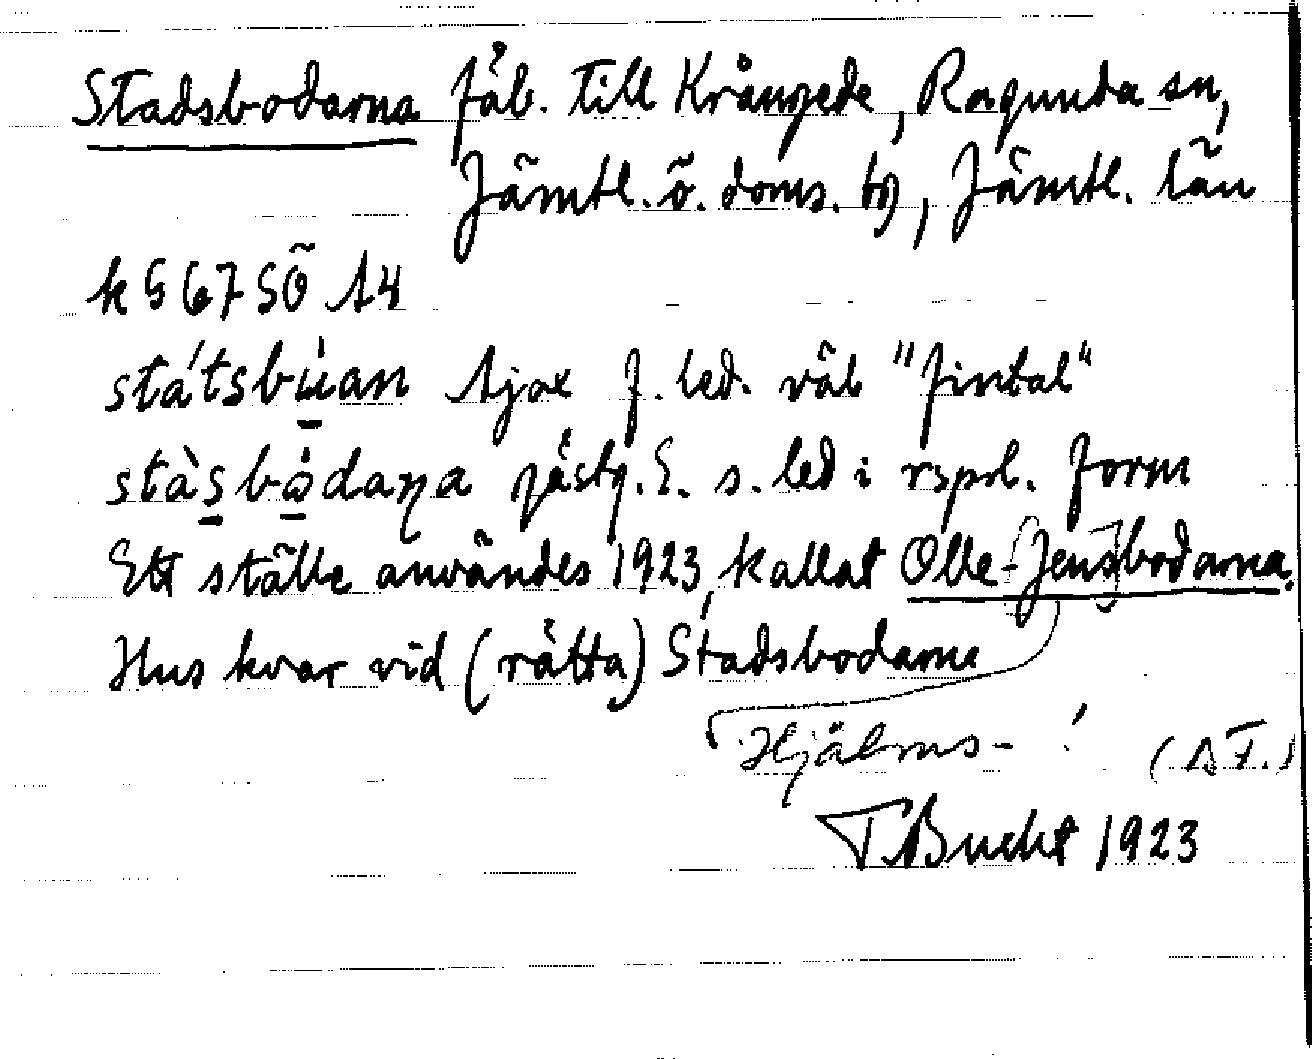 Stadsbodarna fäb. till Krångede, Ragunda sn,
Jämtl. ö. doms. tg, Jämtl. län
k § 67 SÖ 14
státsbùan Ajax f. led. väl "fintal"
stàsbòdaṇa gästg. E. s. led i rspr. form
Ett ställe användes 1923, kallat Olle-[Jens]bodarna.
Hus kvar vid (rätta) Stadsbodarne
Hjälms- ! (AF.)
T. Bucht 1923